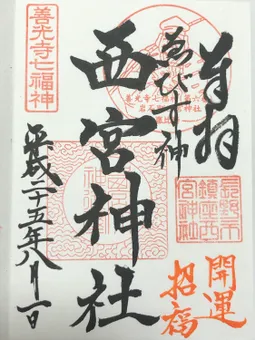 奉拝
ゑびす神
西宮神社
平成二十五年八月一日
善光寺七福神
開運
招福
鎮座西
宮神社